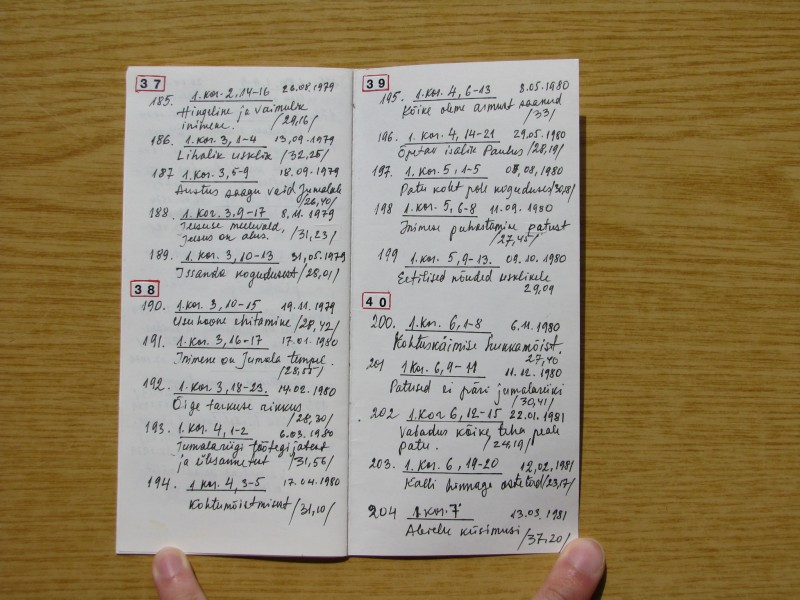 37
185. 1. Kor. 2, 14-16 26.08.1979
Hingeline ja vaimulik
inimene. /29,16/
186. 1. Kor. 3, 1-4 13.09.1979
Lihalik usklik /32,25/
187 1. Kor. 3, 5-9 18.09.1979
Austus saagu vaid Jumalale
/26,40/
188. 1. Kor. 3, 9-17 8.11.1979
Jeesuse meelevald,
Jeesus on alus. /31,23/
189. 1. Kor. 3, 10-13 31.05.1979
Issanda kogudusest /28,01/
38
190. 1. Kor. 3, 10-15 19.11.1979
Usuhoone ehitamine /28,42/
191. 1. Kor. 3, 16-17 17.01.1980
Inimene on Jumala tempel.
/28,55/
192. 1. Kor. 3, 18-23. 14.02.1980
Õige tarkuse rikkus
/28,30/
193. 1. Kor. 4, 1-2 6.03.1980
Jumalariigi töötegijatest
ja ülesannetest /31,56/
194. 1. Kor. 4, 3-5 17.04.1980
Kohtumõistmisest /31,10/
39
195. 1. Kor. 4, 6-13 8.05.1980
Kõike oleme armust saanud
/33/
196. 1. Kor. 4, 14-21 29.05.1980
Õpetav isalik Paulus /28,19/
197. 1. Kor. 5, 1-5 08.08.1980
Patu koht pole koguduses
198 1. Kor. 5, 6-8 11.09.1980
Inimese puhastamine patust
/27,45/
199 1. Kor. 5, 9-13. 09.10.1980
Eetilised nõuded usklikele
29,09
40
200. 1. Kor. 6, 1-8 6.11.1980
Kohtuskäimise hukkamõist.
27,40
201 1 Kor. 6, 9-11 11.12.1980
Patused ei päri jumalariiki
/30,41/
202 1. Kor 6, 12-15 22.01.1981
Vabadus kõike teha peale
patu. /28,19/
203. 1. Kor. 6, 19-20 12.02.1981
Kalli hinnaga ostetud /23,17/
204 1 Kor. 7 13.03.1981
Abielu küsimusi
/37,20/